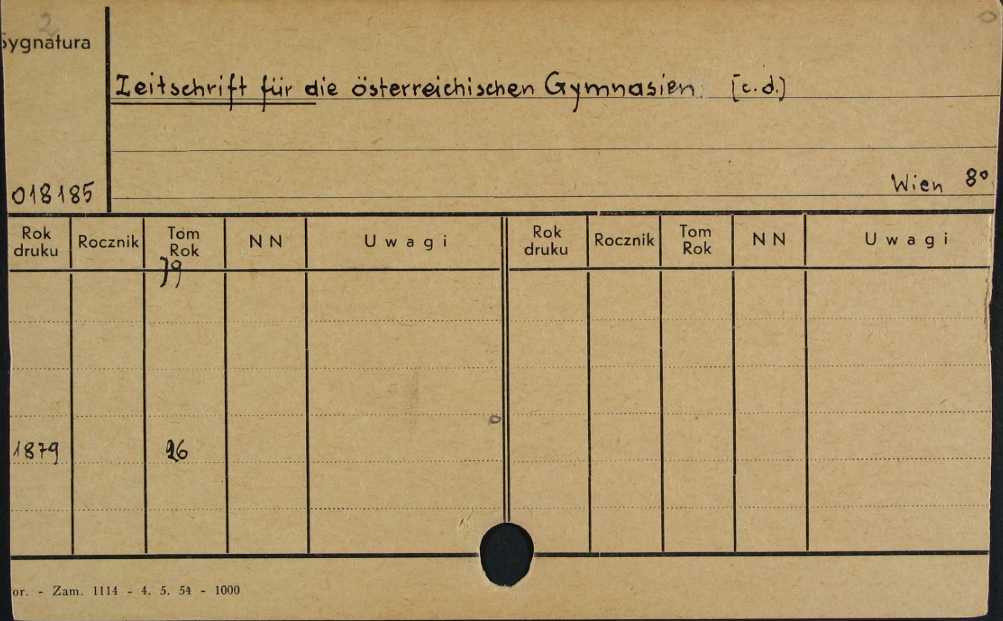 2
Sygnatura
Zeitschrift für die österreichischen Gymnasien. [c.d.]
018185
Wien 8°
Rok druku Rocznik Tom Rok NN Uwagi Rok druku Rocznik Tom Rok NN Uwagi
79
1879 26
or. - Zam. 1114 - 4. 5. 54 - 1000